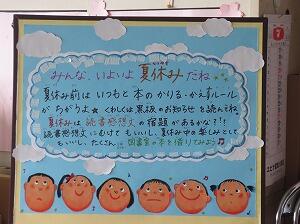 みんな、いよいよ 夏休みだね
夏休み前は いつもと 本の かりる・かえすルール
が ちがうよ★ くわしくは 黒板のお知らせ を 読んでね。
夏休みは 読書感想文 の 宿題 が あるかな？！
読書感想文にむけて も いいし、夏休み中の 楽しみとして
も いいし、たくさん 図書室の本を借りてみよう♫
7